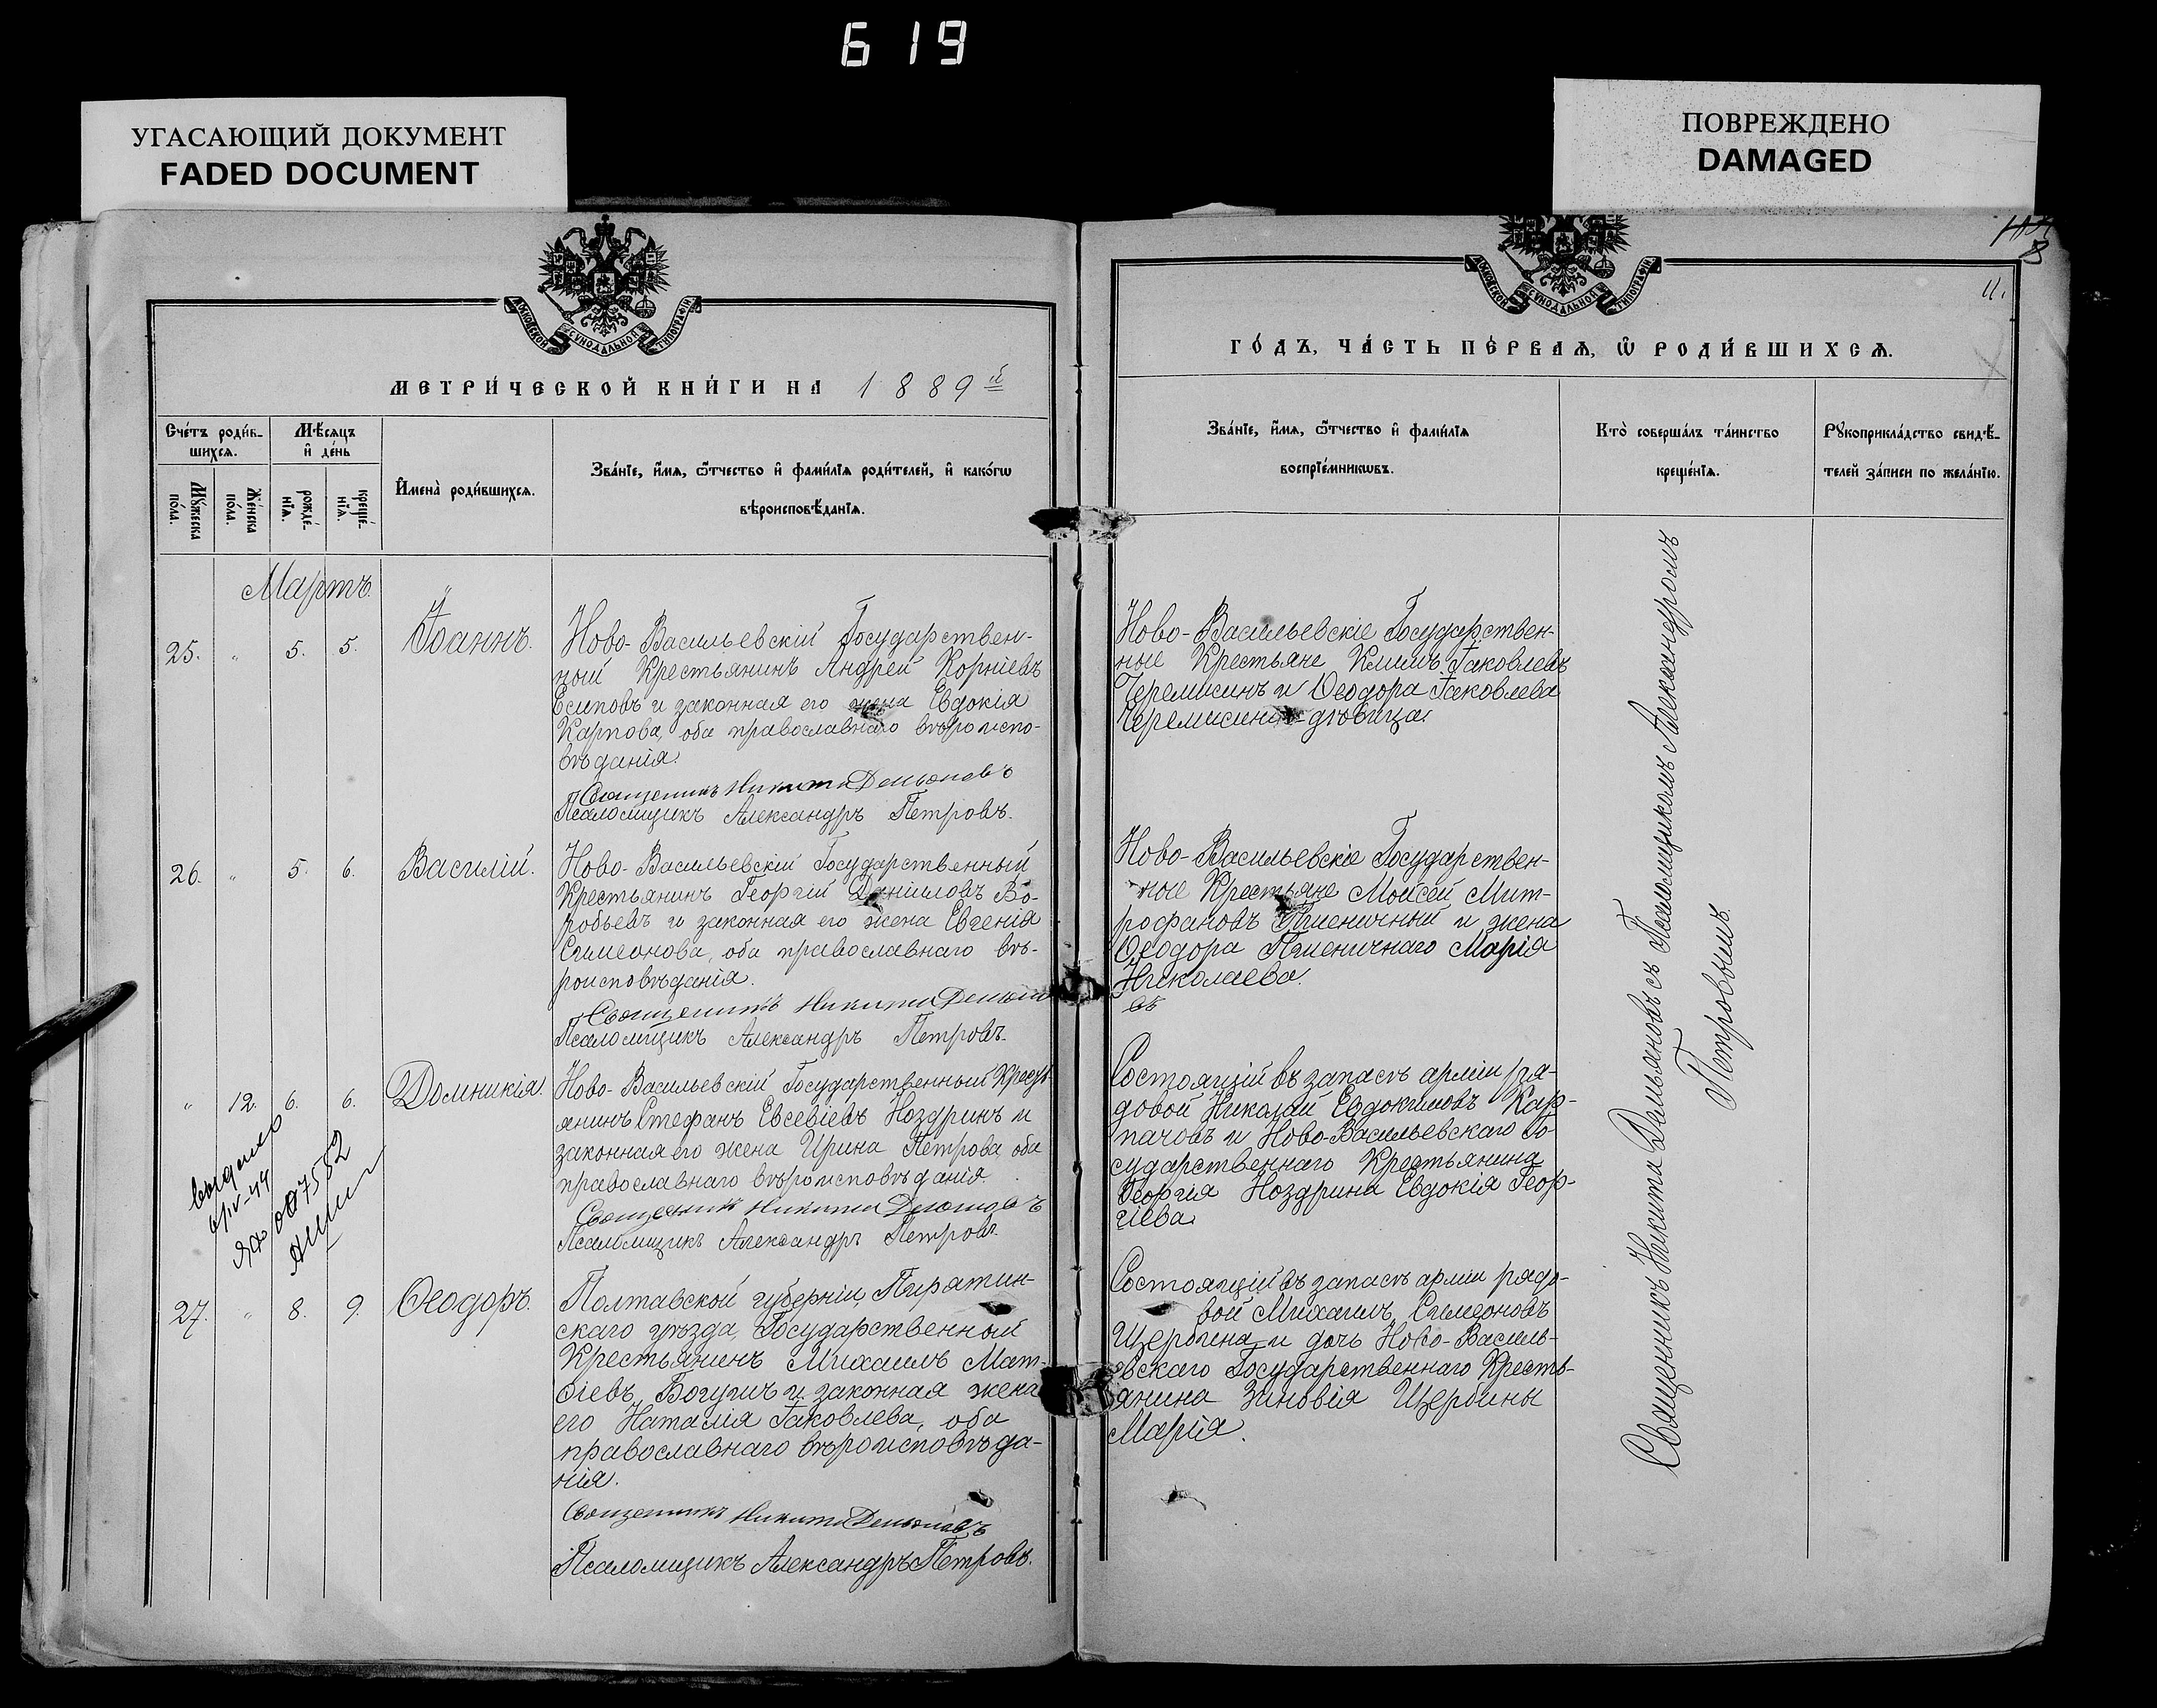 619
УГАСАЮЩИЙ ДОКУМЕНТ
FADED DOCUMENT
ПОВРЕЖДЕНО
DAMAGED
8
11.
МОСКОВСКОЙ СѴНОДАЛЬНОЙ ТИПОГРАФІИ
МЕТРИ́ЧЕСКОЙ КНИ́ГИ НА 1889й
Сче́тъ роди́в-
шихсѧ.
Мѣ́сѧцъ
и҆ де́нь
Мꙋ́жеска
по́ла.
Же́нска
по́ла.
рожде́-
нїѧ.
креще́-
нїѧ.
И҆мена̀ роди́вшихсѧ.
Зва́нїе, и҆́мѧ, ѻ҆́тчество и҆ фами́лїѧ роди́телей, и҆ како́гѡ
вѣроисповѣ́данїѧ.
Мартъ.
25. " 5. 5. Іоаннъ.
Ново-Васильевскій Государствен-
ный Крестьянинъ Андрей Корніевъ
Есиповъ и законная его жена Евдокія
Карпова, оба православнаго вѣроиспо-
вѣданія.
Священникъ Никита Демьяновъ
Псаломщикъ Александръ Петровъ.
26. " 5. 6. Василій.
Ново-Васильевскій Государственный
Крестьянинъ Георгій Даниловъ Во-
робьевъ и законная его жена Евгенія
Симеонова, оба православнаго вѣ-
роисповѣданія.
Священникъ Никита Демьян
Псаломщикъ Александръ Петровъ.
" 12. 6. 6. Домникія.
Ново-Васильевскій Государственный Кресть-
янинъ Стефанъ Евсевіевъ Ноздринъ и
законная его жена Ирина Петрова, оба
православнаго вѣроисповѣданія.
Священникъ Никита Демьяновъ
Псаломщикъ Александръ Петровъ.
выдано
007552
27. " 8. 9. Ѳеодоръ.
Полтавской губерніи, Пирятин-
скаго уѣзда, Государственный
Крестьянинъ Михаилъ Мат-
ѳіевъ Богушъ и законная жена
его Наталія Іаковлева, оба
православнаго вѣроисповѣда-
нія.
Священникъ Никита Демьяновъ
Псаломщикъ Александръ Петровъ.
МОСКОВСКОЙ СѴНОДАЛЬНОЙ ТИПОГРАФІИ
ГО́ДЪ, ЧА́СТЬ ПЕ́РВАѦ, Ѡ҆ РОДИ́ВШИХСѦ.
Зва́нїе, и҆́мѧ, ѻ҆́тчество и҆ фами́лїѧ
воспрїе́мникѡвъ.
Кто̀ соверша́лъ та́инство
креще́нїѧ.
Рꙋкоприкла́дство свидѣ́-
телей за́писи по жела́нїю.
Ново-Васильевскіе Государствен-
ные Крестьяне Климъ Іаковлевъ
Черемисинъ и Ѳеодора Іаковлева
Черемисина-дѣвица.
Ново-Васильевскіе Государствен-
ные Крестьяне Мойсей Мит-
рофановъ Пшеничный и жена
Ѳеодора Пшеничнаго Марія
Николаева.
въ
Состоящій въ запасѣ арміи ря-
довой Николай Евдокимовъ Кар-
пачовъ и Ново-Васильевскаго Го-
сударственнаго Крестьянина
Георгія Ноздрина Евдокія Геор-
гіева.
Состоящій въ запасѣ арміи рядо-
вой Михаилъ Симеоновъ
Щербина и дочь Ново-Василь-
евскаго Государственнаго Кресть-
янина Зиновія Щербины
Марія.
Священникъ Никита Демьяновъ съ Псаломщикомъ Александромъ
Петровымъ.